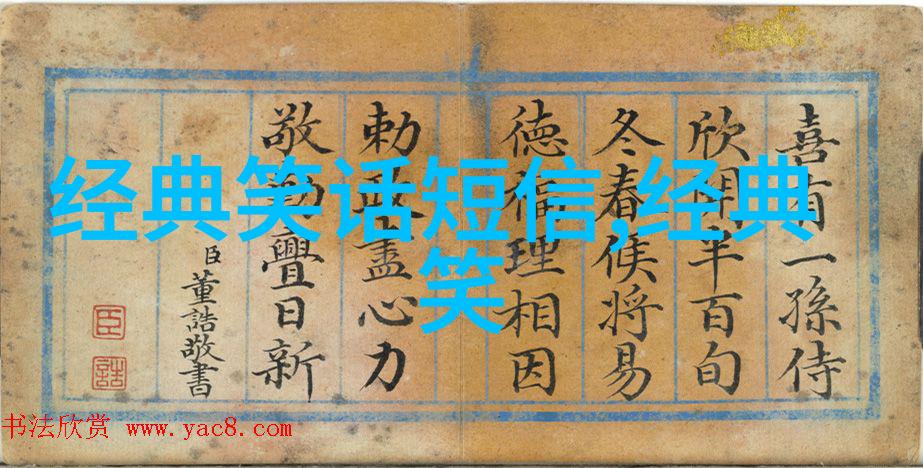 经典笑话短信,经典
笑
喜有一孫侍
欣半百旬
冬春候將易
徳理相因
勅盡心力
敬勤日新
臣董誥敬書
臣
誥
书法欣赏 www.yac8.com